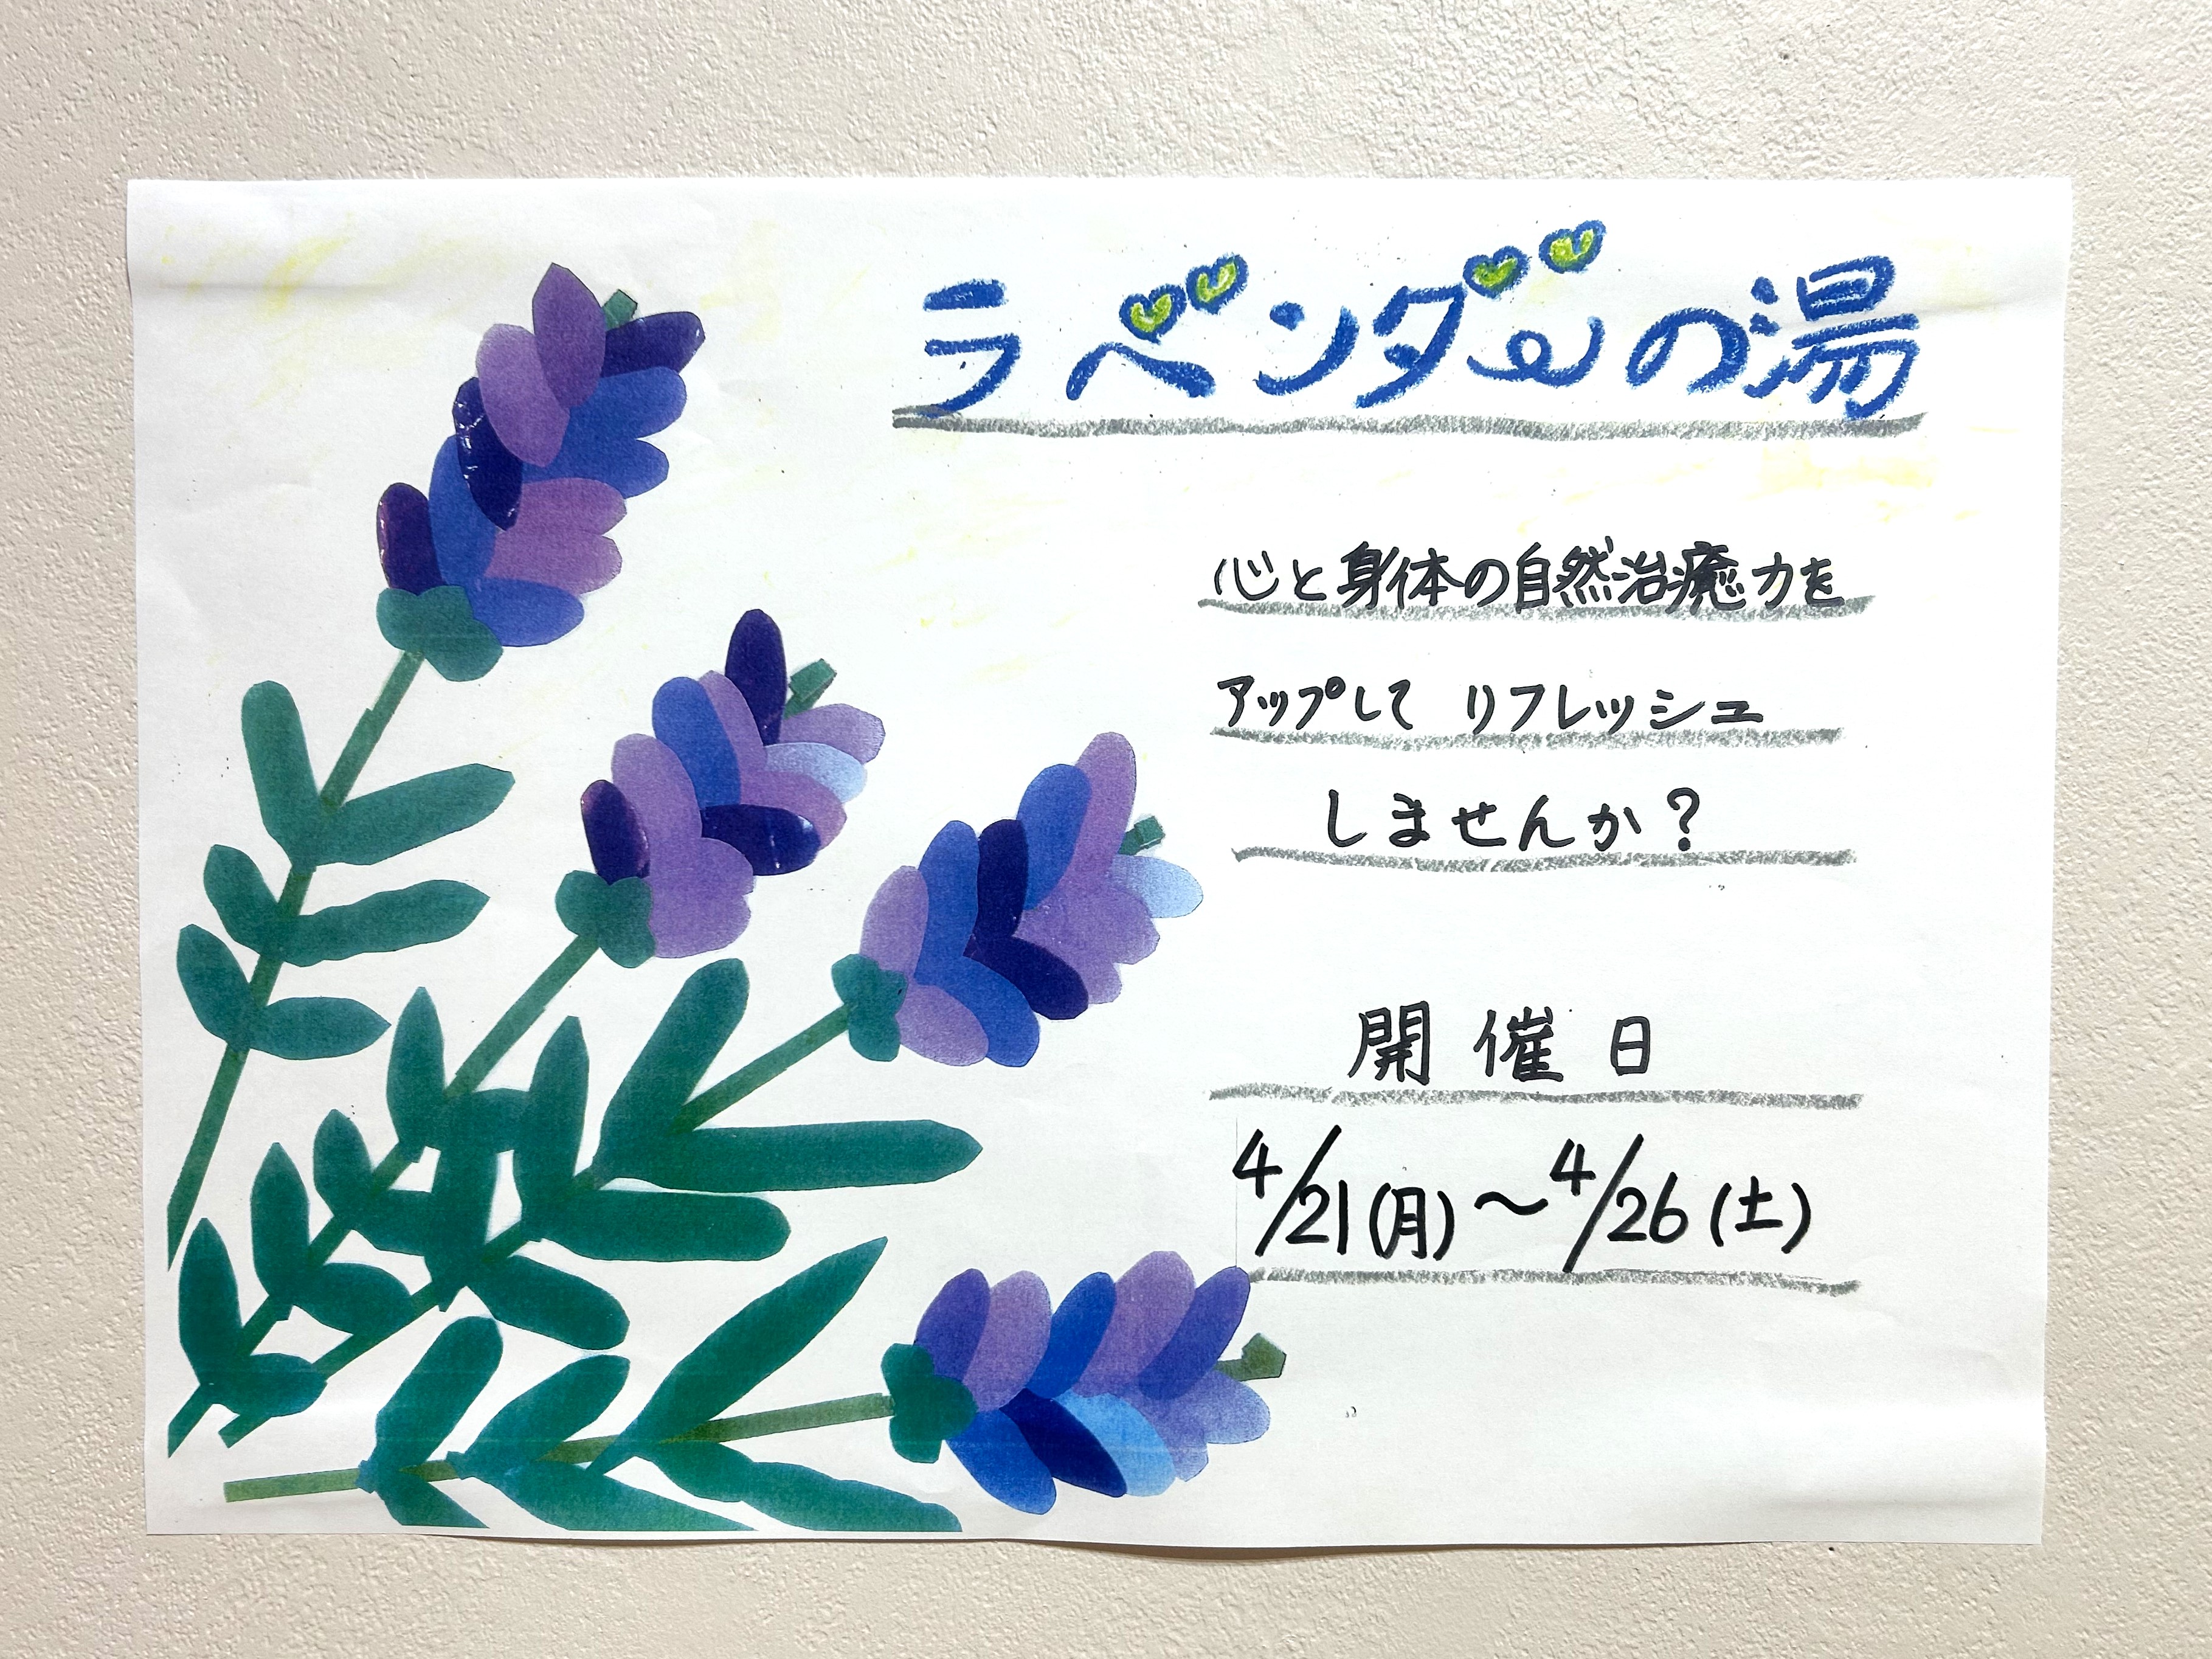 ラベンダーの湯
心と身体の自然治癒力を
アップして リフレッシュ
しませんか？
開催日
4/21(月)～4/26(土)